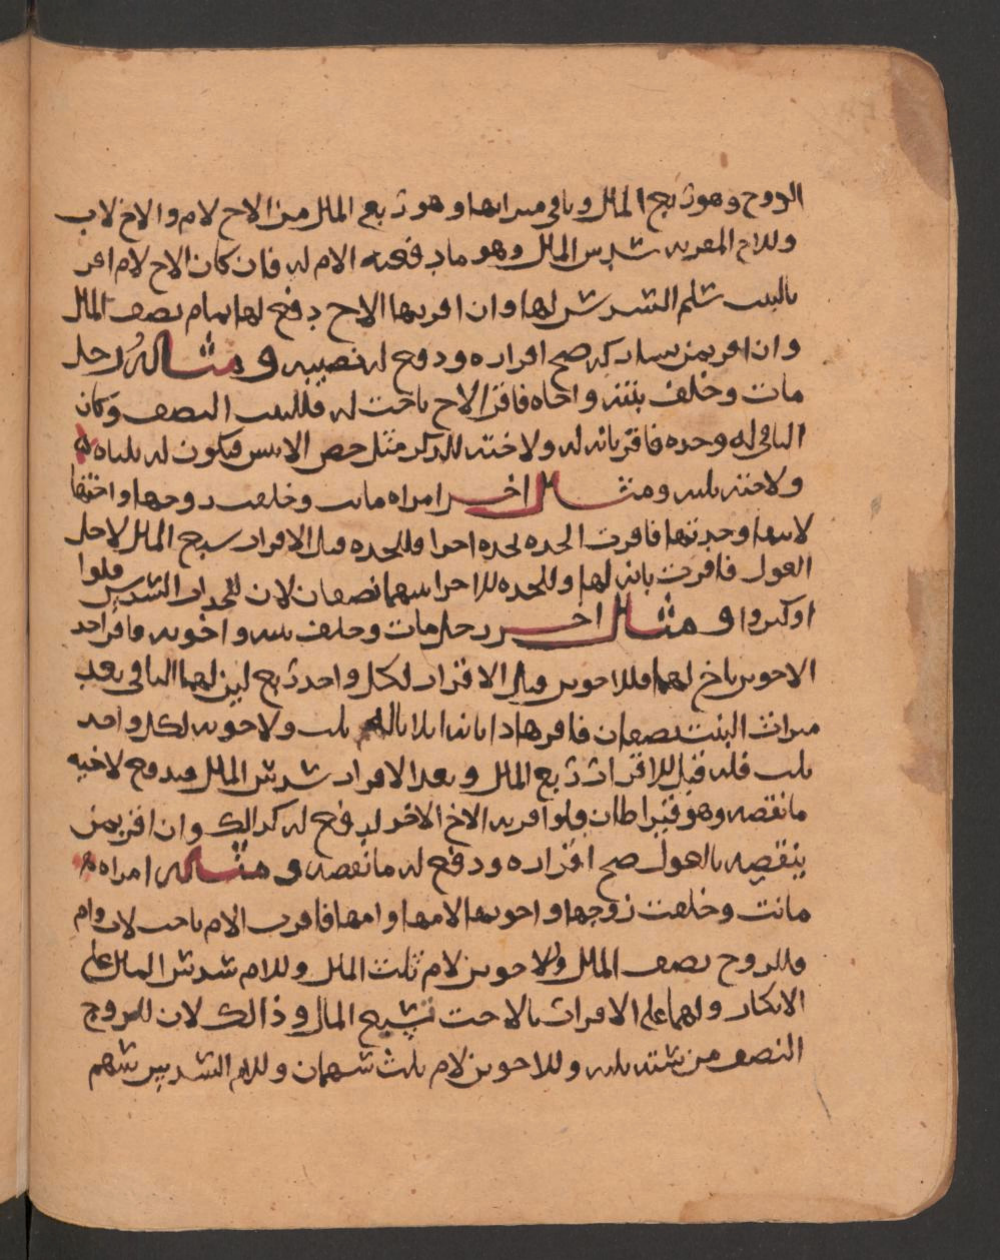 الزوج وهو ربع المال وباقي ميراثها وهو ربع المال من الاخ لام والاخ لاب
وللاخ المقر به سدس المال وهو ما دفعته الام له فان كان الاخ لام اقر
بالبنت سلم السدس لها وان اقر بها الاخ دفع لها تمام نصف المال
وان اقر بمن يشاركه صح اقراره ودفع له نصيبه ومثاله رجل
مات وخلف بنته واخاه فاقر الاخ باخت له فللبنت النصف وكان
الباقي له وحده فاقر بانه له ولاخته للذكر مثل حظ الانثيين فيكون له ثلثاه
ولاخته ثلثه ومثال اخر امراه ماتت وخلفت زوجها واختها
لابيها وجدتها فاقرت الجده بجده اخرا فللجده قبل الاقرار سبع المال لاجل
العول فاقرت بانه لها وللجده الاخرا بينهما نصفان لان للجدات السدس قلوا
او كثروا ومثال اخر رجل مات وخلف بنته واخويه فاقر احد
الاخوين باخ لهما فللاخوين قبل الاقرار لكل واحد ربع لان لهما الباقي بعد
ميراث البنت نصفان فاقر هاذا بانه اثلاثا له ثلث ولاخويه لكل واحد
ثلث فله قبل الاقرار ربع المال وبعد الاقرار سدس المال فيدفع لاخيه
ما نقصه وهو قيراطان ولو اقر به الاخ الاخر لدفع له كذالك وان اقر بمن
ينقصه بالعول صح اقراره ودفع له ما نقصه ومثاله امراه
ماتت وخلفت زوجها واخويها لامها وامها فاقرت الام باخت لاب وام
فللزوج نصف المال وللاخوين لام ثلث المال وللام سدس المال على
الانكار ولهما على الاقرار بالاخت تسع المال وذالك لان للزوج
النصف من سته ثلثه وللاخوين لام ثلث سهمان وللام السدس سهم